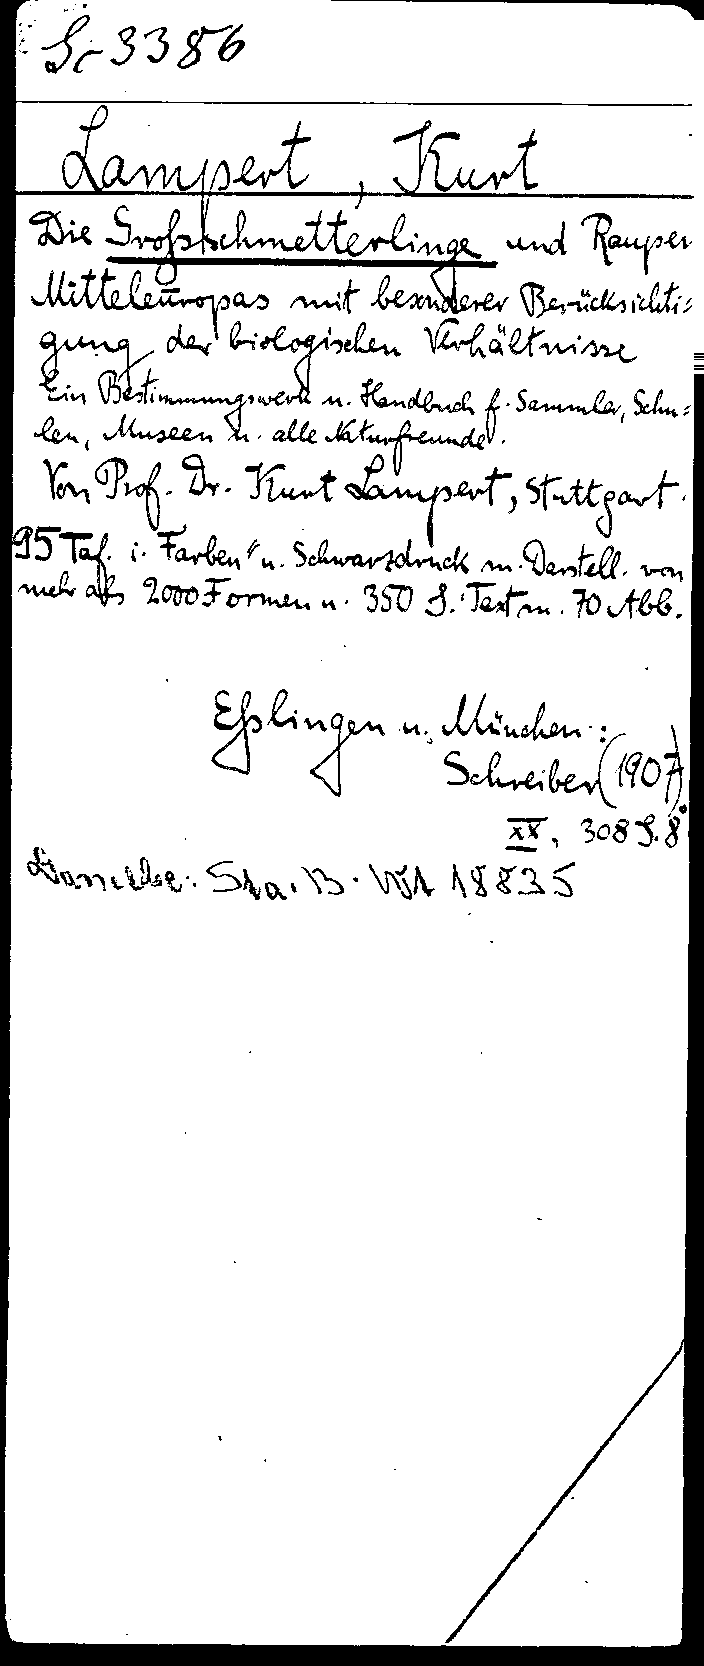 Sc 3386
Lampert, Kurt
Die Grossschmetterlinge und Raupen
Mitteleuropas mit besonderer Berücksichti=
gung der biologischen Verhältnisse
Ein Bestimmungswerk u. Handbuch f. Sammler, Schu=
len, Museen u. alle Naturfreunde.
Von Prof. Dr. Kurt Lampert, Stuttgart.
95 Taf. i. Farben" u. Schwarzdruck m. Darstell. von
mehr als 2000 Formen u. 350 S. Text m. 70 Abb.
Eßlingen u. München:
Schreiber (1907)
XX, 308 S. 8°
Dasselbe: Sta. B. W1 18835